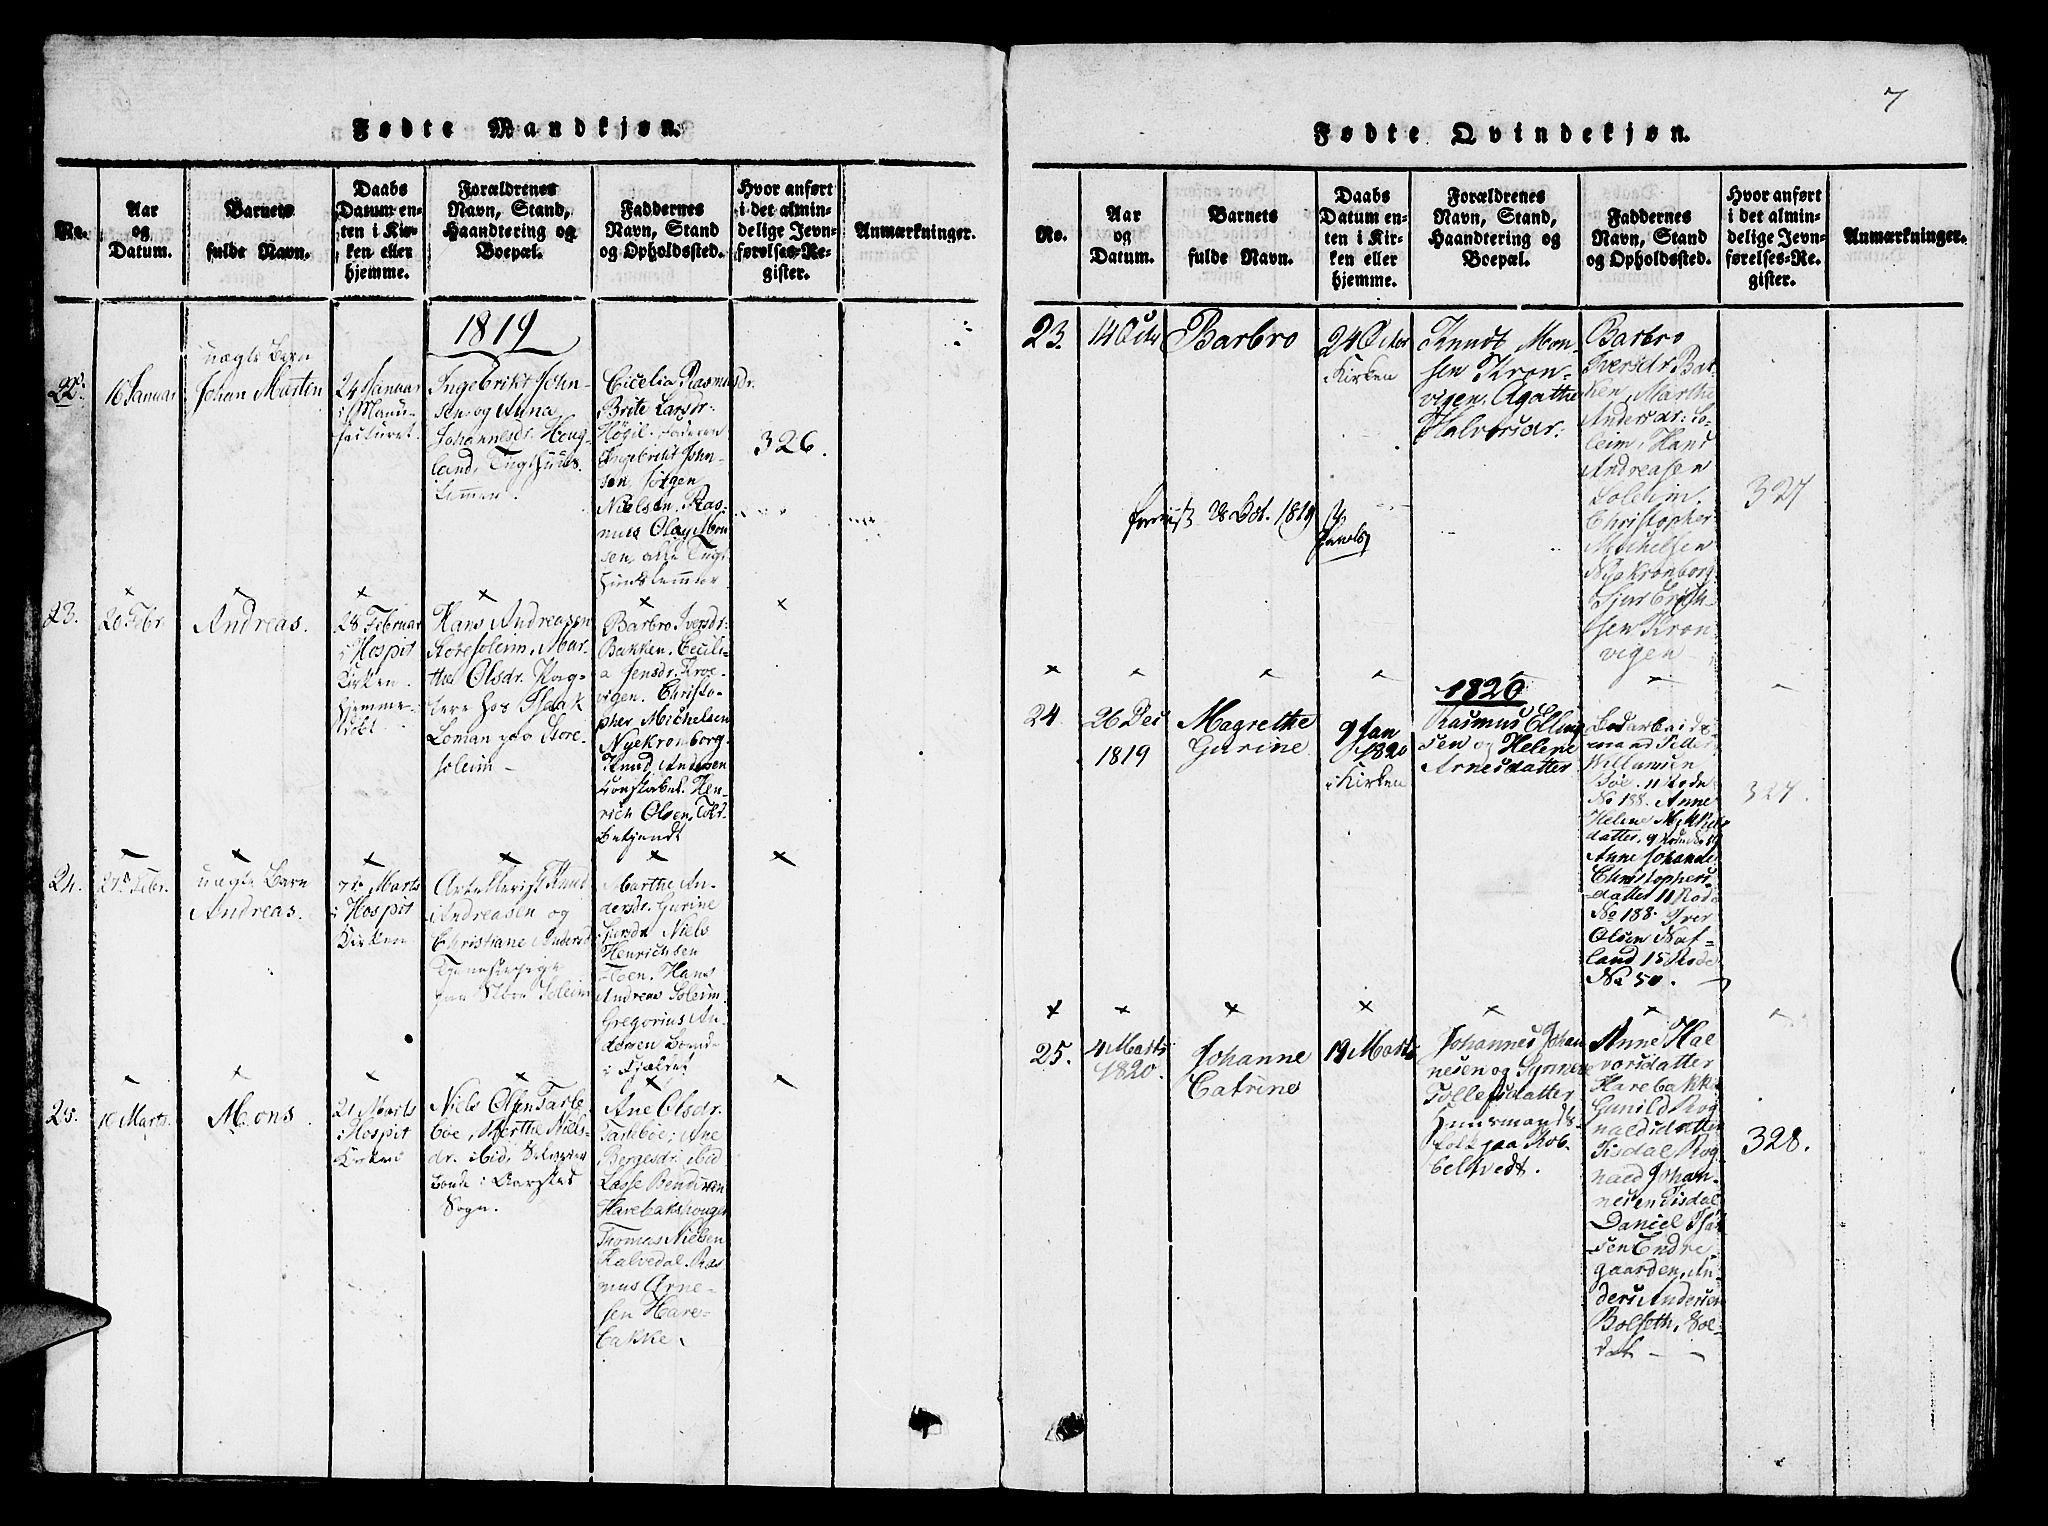 7
Fødte Mandkjøn.
No.
Aar
og
Datum.
Barnets
fulde Navn.
Daabs
Datum en-
ten i Kir-
ken eller
hjemme.
Forældrenes
Navn, Stand,
Haandtering og
Boepæl.
Faddernes
Navn, Stand
og Opholdssted.
Hvor anført
i det almin-
delige Jevn-
førelses-Re-
gister.
Anmærkninger.
1819
22.
16 Januar
uægte Barn
Johan Morten
24 Januar
i Manu-
facturet.
Ingebrikt John-
sen og Anna
Johannesdr. Houg-
land, Tugthuus-
Lemmer.
Cicelia Rasmusdr.
Brite Larsdr:
Høgil. Faderen
Ingebrikt John-
sen, Jörgen
Nielsen, Ras-
mus Olay Mon
sen, alle Tugt
huuslemmer
326.
23.
20 Febr
Andreas.
28 Februar
i Hospit
Kirken.
Hjemme-
döbt
Hans Andreasen
Storesoleim, Mar-
the Olsdr.
hos Isaak
Loman paa Store-
soleim
Barbro Iversdr:
Bakken, Cecili-
a Jensdr. Kroe-
vigen. Christo-
pher Michelsen
Nyekronborg.
Knud Andersen
Constabel. Hen-
rich Olsen,
Bekjendt
24.
27 Febr.
uægte Barn
Andreas.
7 Marts
i Hospit
Kirken
Artellerist Knud
Andreasen og
Christiane Andersd
Tjenestepige
paa Store Soleim
Marthe An-
dersdr. Gurine
Sjursdr Niels
Henrichsen
Hans
Andreas Soleim.
Gregorius An-
dersen Bonde
i Fjæleret
25.
10 Marts
Mons
21 Marts
i Hospit
Kirken
Niels Olsen Tarle-
böe, Marthe Niels-
dr. ibid,
Bonde i Aarstad
Sogn.
Ane Olsdr.
Tarleböe; Ane
Börgesdr: ibid
Lasse Bendixen
Harebakshougen
Thomas Nielsen
Kalvedal. Ras
mus Arne-
sen Hare-
bakke.
Fødte Qvindekjøn.
No.
Aar
og
Datum.
Barnets
fulde Navn.
Daabs
Datum en-
ten i Kir-
ken eller
hjemme.
Forældrenes
Navn, Stand,
Haandtering og
Boepæl.
Faddernes
Navn, Stand
og Opholdssted.
Hvor anført
i det almin-
delige Jevn-
førelses-Re-
gister.
Anmærkninger.
23.
14 Octr
Barbro
24 Octor
i Kirken
Knudt Mon-
sen Kron-
vigen, Agathe
Halvorsdr:
Barbro
Iversdr Bak-
ken, Marthe
Andersdr: So-
leim, Hans
Andreasen
Soleim.
Christopher
Michelsen
Nyekronborg.
Sjur Erich-
sen Kron-
vigen
327
28 Oct. 1819
24
26 Dec
1819
Magrethe
Gurine
9 Jan
1820
i Kirken
1820
Rasmus Elling
sen og Helene
Arnesdatter
Bodarbeids
mand Petter
Willumsen
Böe. 11 Rode
No 188. Anne
Helene Mikkels
datter, 9
Anne Johanne
Christophers
datter 11 Rode
No 188. Iver
Olsen Naf-
land 15 Rode
No 50.
327.
25.
4 Marts
1820.
Johanne
Catrine
19 Marts
Johannes Johan
nesen og Synneve
Tollefsdatter
Huusmands-
folk paa Rob-
beltvedt.
Anne Hal
vorsdatter
Harebakke
Gunild Rog
naldsdatter
Tisdal Rog
nald Johan-
nesen Tisdal
Daniel Isak
sen Endre-
gaarden, An-
ders Andersen
Bolseth, Sol-
dat
328.